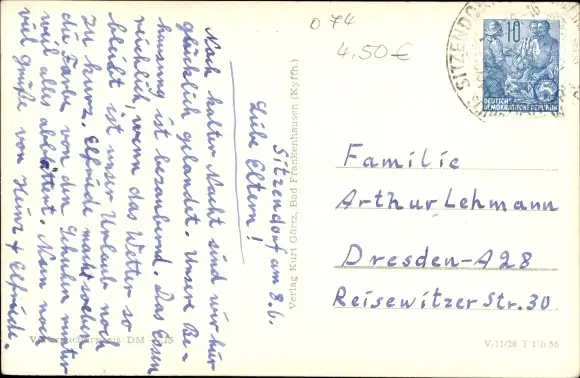 0 74
4.50€
SITZENDORF
10
DEUTSCHE
DEMOKRATISCHE REPUBLIK
Sitzendorf am 8.6.
Liebe Eltern!
Nach kalter Nacht sind wir hier
glücklich gelandet. Unsere Be-
hausung ist bezaubernd. Das Essen
reichlich, wenn das Wetter so
bleibt ist unser Urlaub noch
zu kurz. Elfriede macht soeben
die Farbe von den Schuhen runter
weil alles abblättert. Nun noch
viel Grüße von Heinz & Elfriede.
Verlag Kurt Görtz, Bad Frankenhausen (Kyffh.)
Familie
Arthur Lehmann
Dresden-A28
Reisewitzer Str. 30
DM
V/11/28 T 1/6 56